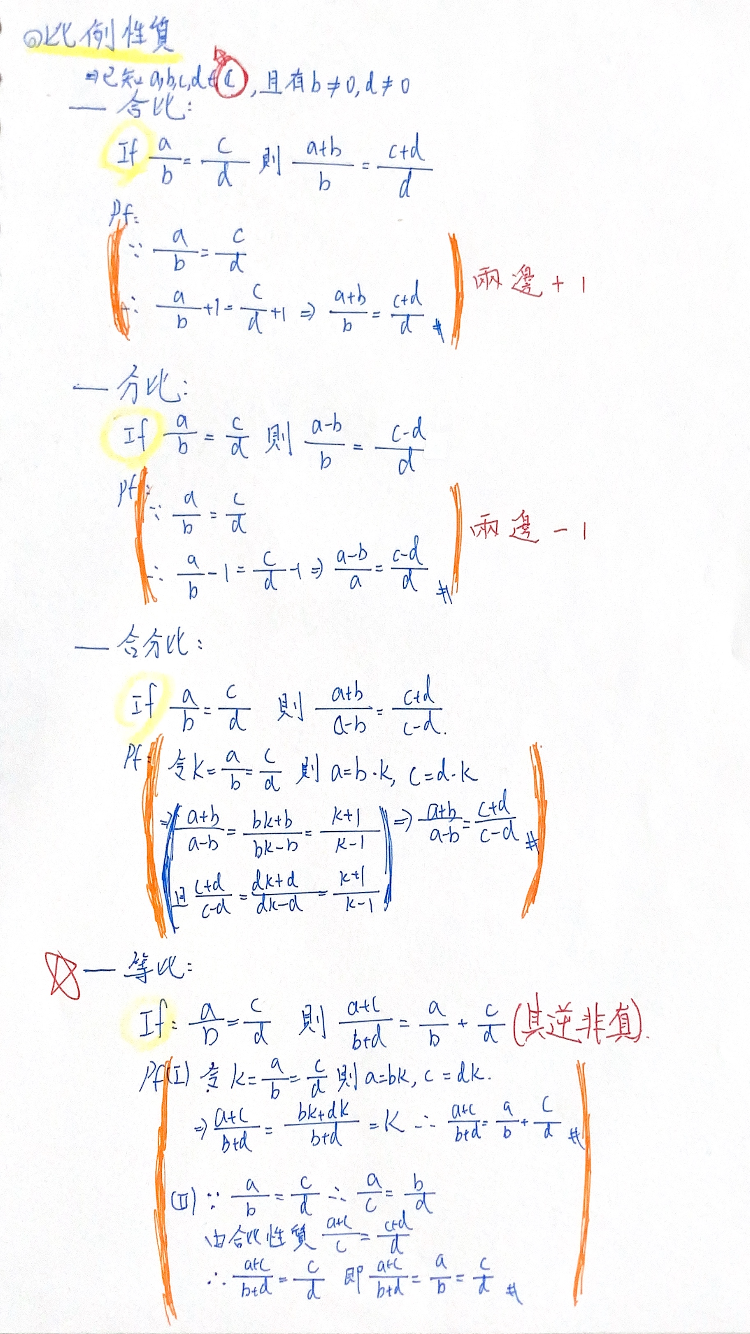 ⊙比例性質
⇒已知 a,b,c,d∈ℂ, 且有 b≠0, d≠0
— 合比:
If a/b = c/d 則 (a+b)/b = (c+d)/d
Pf:
∵ a/b = c/d
∴ a/b +1 = c/d +1 ⇒ (a+b)/b = (c+d)/d #
兩邊 + 1
— 分比:
If a/b = c/d 則 (a-b)/b = (c-d)/d
Pf:
∵ a/b = c/d
∴ a/b -1 = c/d -1 ⇒ (a-b)/a = (c-d)/d #
兩邊 - 1
— 合分比:
If a/b = c/d 則 (a+b)/(a-b) = (c+d)/(c-d).
Pf: 令 k = a/b = c/d 則 a=b·k, c=d·k
⇒ (a+b)/(a-b) = (bk+b)/(bk-b) = (k+1)/(k-1) ⇒ (a+b)/(a-b) = (c+d)/(c-d) #
且 (c+d)/(c-d) = (dk+d)/(dk-d) = (k+1)/(k-1)
☆ — 等比:
If: a/b = c/d 則 (a+c)/(b+d) = a/b + c/d (其逆非真).
Pf(I) 令 k = a/b = c/d 則 a=bk, c=dk.
⇒ (a+c)/(b+d) = (bk+dk)/(b+d) = K ∴ (a+c)/(b+d) = a/b + c/d #
(II) ∵ a/b = c/d ∴ a/c = b/d
由合比性質 (a+c)/c = (c+d)/d
∴ (a+c)/(b+d) = c/d 即 (a+c)/(b+d) = a/b = c/d #